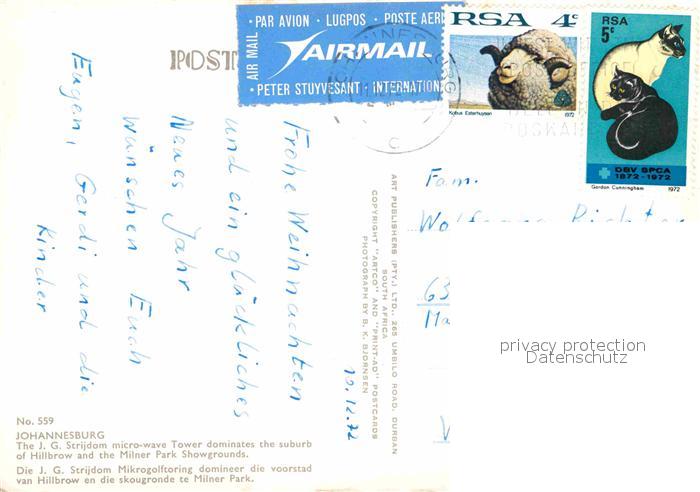 PAR AVION · LUGPOS · POSTE AER
AIR MAIL
AIRMAIL
PETER STUYVESANT · INTERNATION
POST
RSA 4c
Kobus Esterhuysen 1972
RSA
5c
DBV SPCA
1872-1972
Gordon Cunningham 1972
C
POSKA
Frohe Weihnachten
und ein glückliches
Neues Jahr
wünschen Euch
Eugen, Gerdi und die
Kinder
10.12.72
ART PUBLISHERS (PTY.) LTD., 265 UMBILO ROAD, DURBAN
SOUTH AFRICA
COPYRIGHT "ARTCO" AND "PRINT-AD" POSTCARDS
PHOTOGRAPH BY B. K. BJORNSEN
Fam.
63
Ma
privacy protection
Datenschutz
No. 559
JOHANNESBURG
The J. G. Strijdom micro-wave Tower dominates the suburb
of Hillbrow and the Milner Park Showgrounds.
Die J. G. Strijdom Mikrogolftoring domineer die voorstad
van Hillbrow en die skougronde te Milner Park.